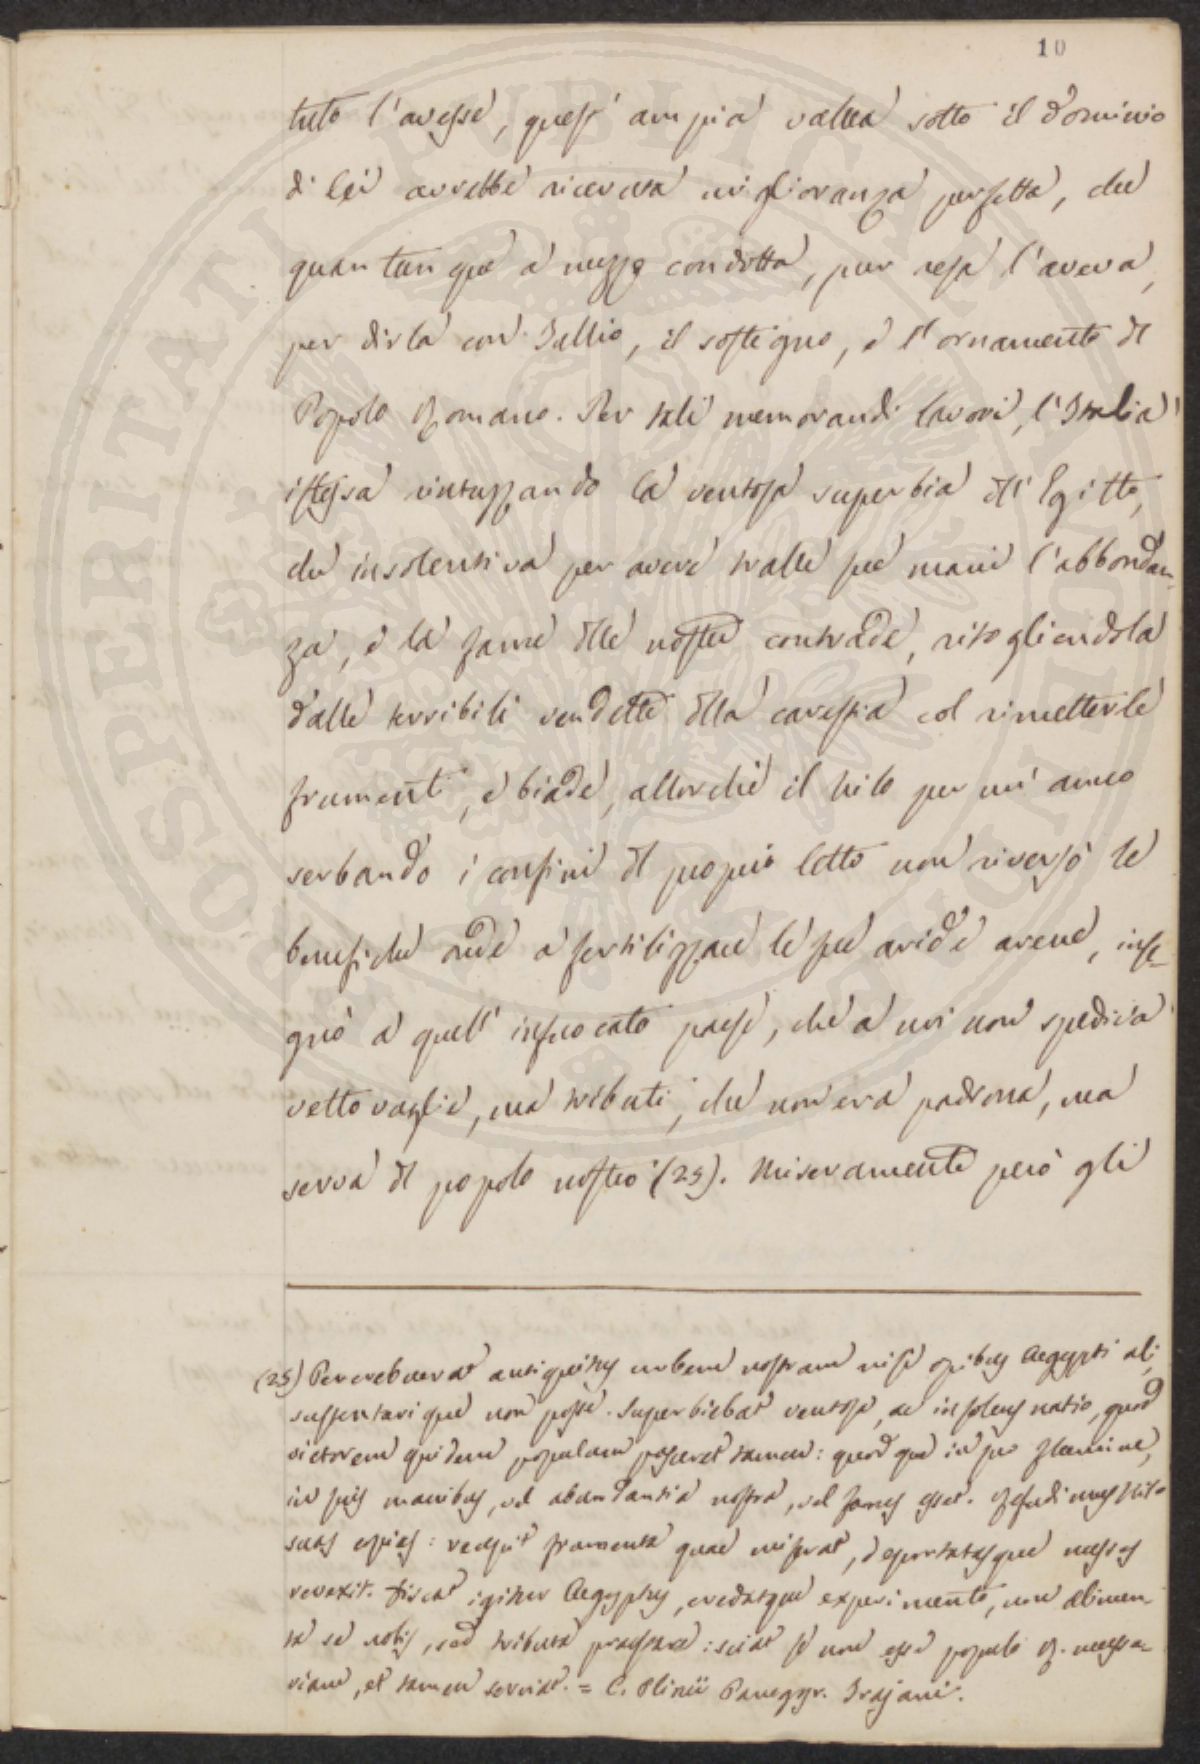 10
tuto l'avesse, quest' ampia vallea sotto il dominio
di lei avrebbe ricevuta miglioranza perfetta, che
quantunque a mezzo condotta, pur resa l'aveva,
per dirla con Tullio, il sostegno, e l'ornamento del
Popolo Romano. Per tali memorandi lavori, l'Italia
istessa rintuzzando la ventosa superbia dell'Egitto,
che insolentiva per avere tralle sue mani l'abbondan-
za, e la fame delle nostre contrade, ritogliendola
dalle terribili vendette della carestia col rimetterle
frumenti, e biade, allorchè il Nilo per un' anno
serbando i confini del proprio letto non riversò le
benefiche onde a fertilizzare le sue aride arene, inse-
gnò a quell' infuocato paese, che a noi non spediva
vettovaglie, ma tributi, che non era padrona, ma
serva del popolo nostro (25). Miseramente però gli
(25) Percrebuerat antiquitus urbem nostram nisi opibus Aegypti ali,
sustentarique non posse. Superbiebat ventosa, ac insolens natio, quod
victorem quidem populum pasceret tamen: quodque in suo flumine,
in suis manibus, vel abundantia nostra, vel fames esset. Refudimus Nilo
suas copias: recepit frumenta quae miserat, deportatasque messes
revexit. Discat igitur Aegyptus, credatque experimento, non alimen-
ta se nobis, sed tributa praestare: sciat se non esse populo R. necessa-
riam, et tamen serviat. = C. Plinii Panegyr. Trajani.
PROSPERITATI PUBLICAE